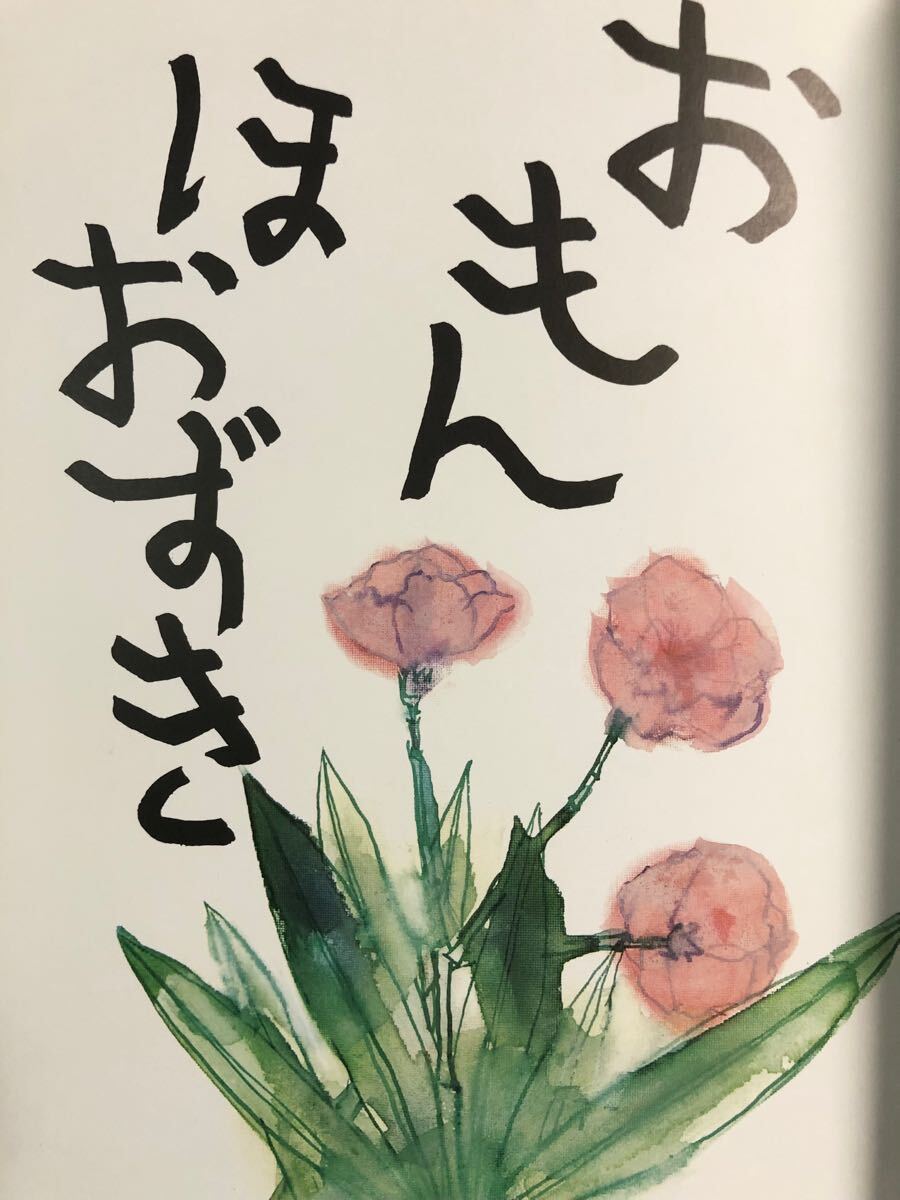 おもん
ほおずき